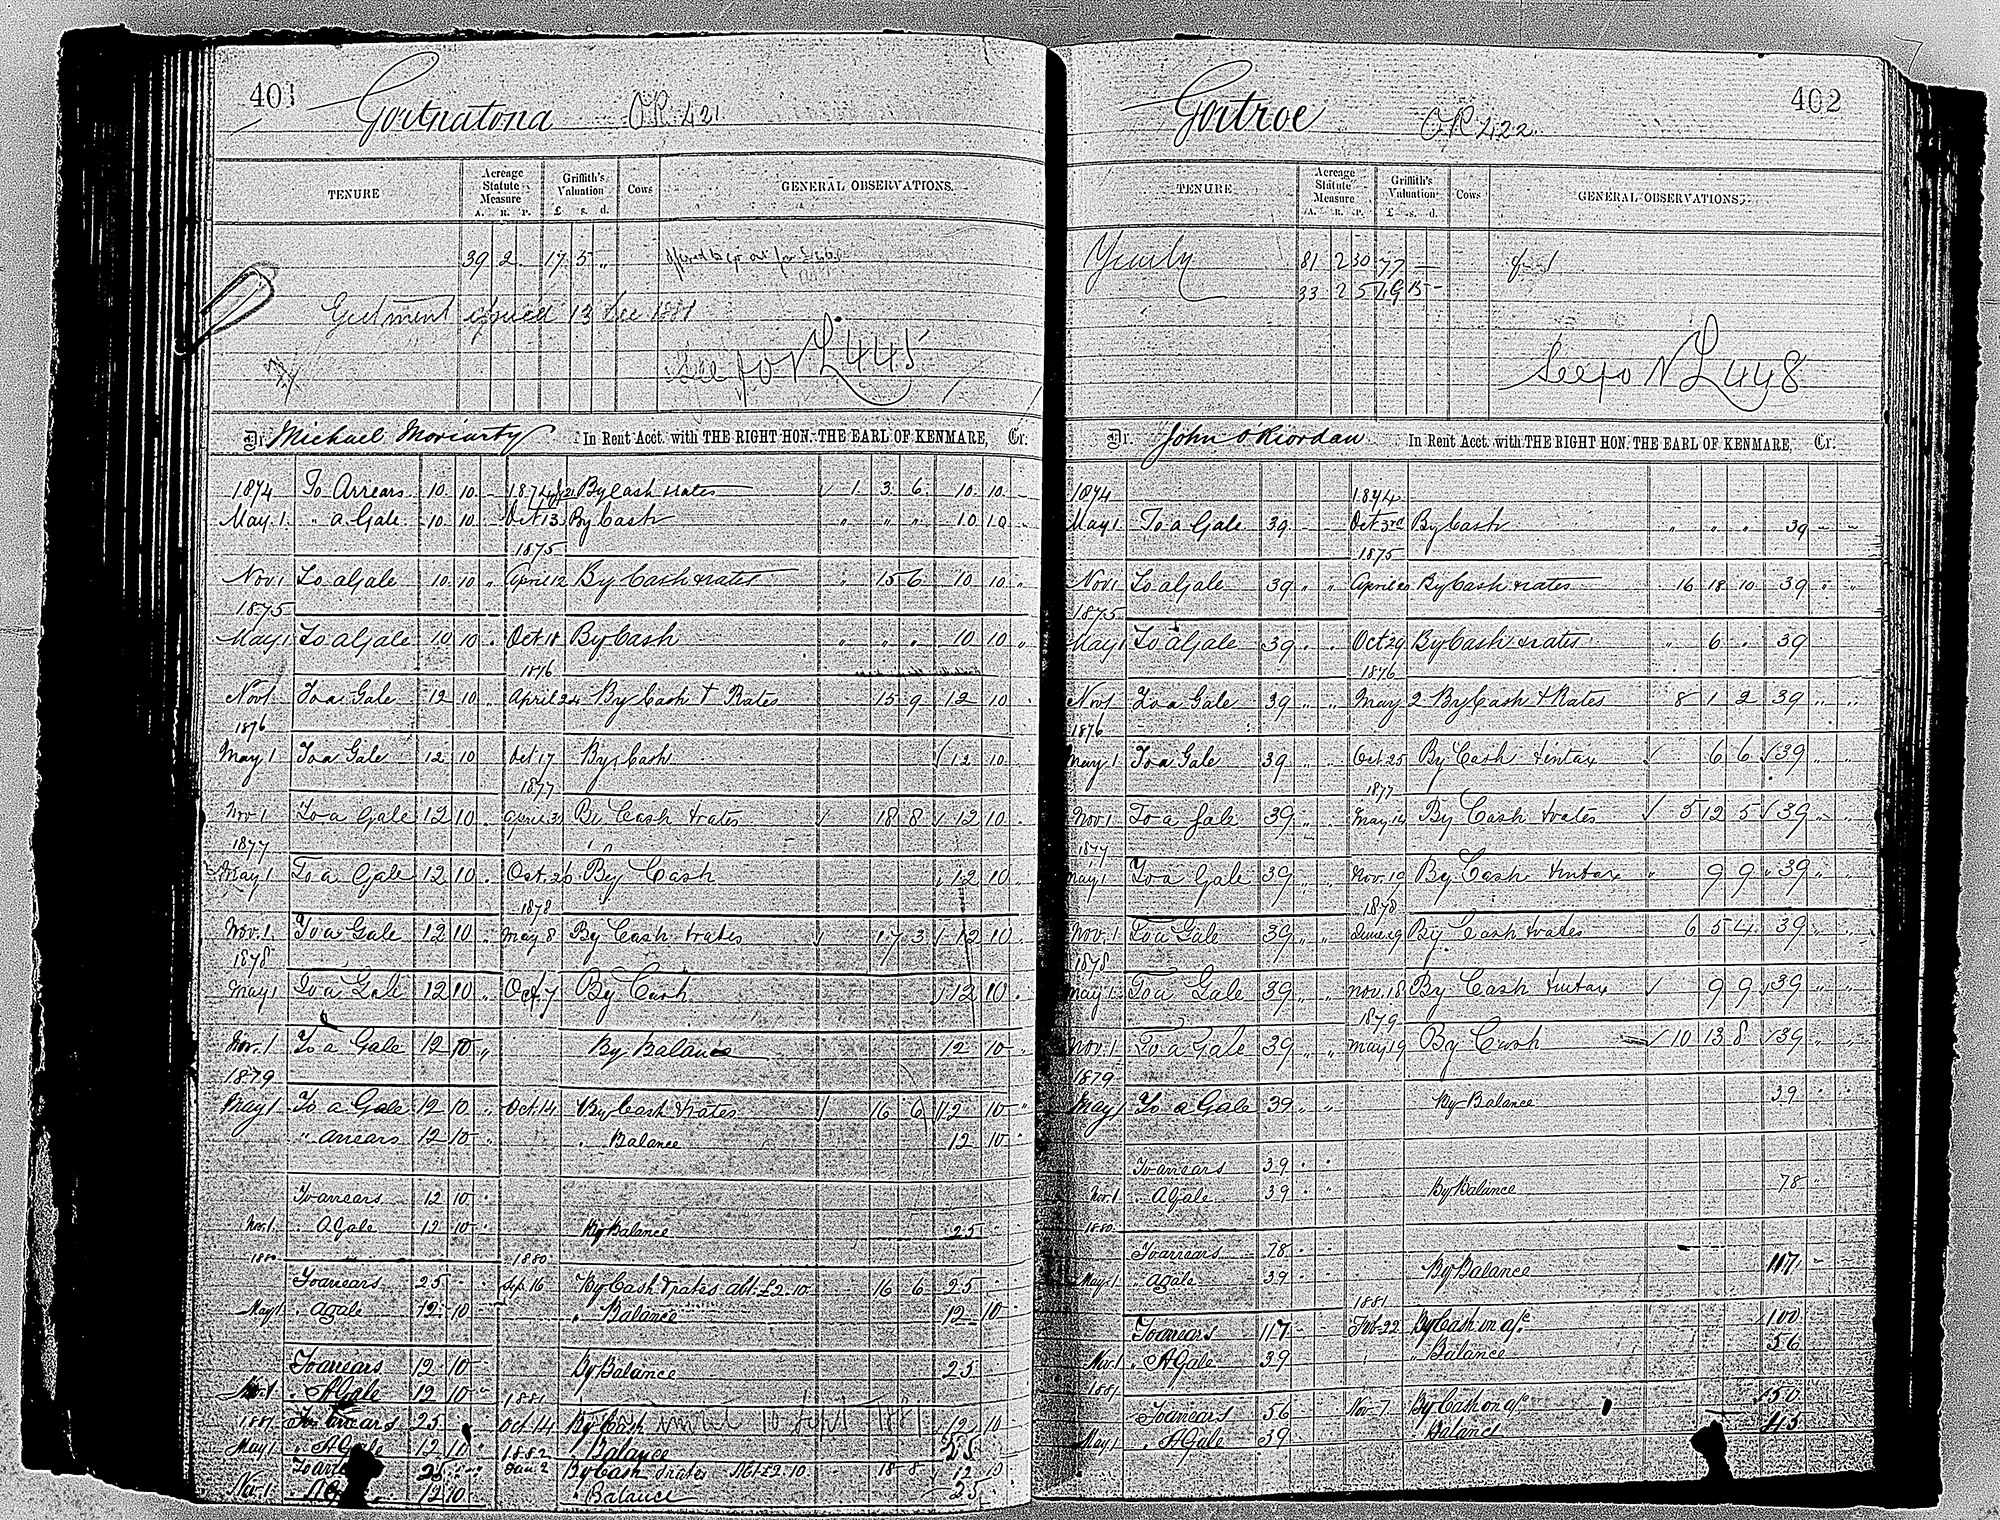 401 Gortnatona OR 421
TENURE Acreage Statute Measure A. R. P. Griffith's Valuation £ s. d. Cows GENERAL OBSERVATIONS.
39 2 17 5 "
issued 13 Dec 1881
See fo NL 445
Dr. Michael Moriarty In Rent Acct. with THE RIGHT HON. THE EARL OF KENMARE, Cr.
1874 To Arrears 10 10 - 1874 By Cash & rates 1 3 6 10 10 -
May 1 " a Gale 10 10 - Oct 13 By Cash " " " 10 10 "
1875
Nov 1 To a Gale 10 10 " April 12 By Cash & rates " 15 6 10 10 "
1875
May 1 To a Gale 10 10 " Oct 18 By Cash " " " 10 10 "
1876
Nov 1 To a Gale 12 10 " April 24 By Cash + Rates 15 9 12 10
1876
May 1 To a Gale 12 10 Oct 17 By Cash 12 10
1877
Nov. 1 To a Gale 12 10 " April 3 By Cash & rates 18 8 12 10
1877
May 1 To a Gale 12 10 " Oct. 26 By Cash 12 10
1878
Nov. 1 To a Gale 12 10 " May 8 By Cash & rates 17 3 12 10
1878
May 1 To a Gale 12 10 " Oct. 7 By Cash 12 10
Nov. 1 To a Gale 12 10 " By Balance 12 10
1879
May 1 To a Gale 12 10 " Oct. 14 By Cash & rates 16 6 12 10 "
" arrears 12 10 " " Balance 12 10
To arrears 12 10 "
Nov. 1 " A Gale 12 10 " By Balance 25
1880 1880
To arrears 25 Sep. 16 By Cash & rates abt. £2.10 16 6 25
May 1 " a gale 12 10 " Balance 12 10
To arrears 12 10 By Balance 25
Nov. 1 " A Gale 12 10 1881
1881 To arrears 25 Oct 14 By Cash 10 Sept 1881 12 10
May 1 " A Gale 12 10 1882 Balance 25
To 25 Jan. 2 By Cash & rates Abt £2.10 18 8 12 10
Nov. 1 12 10 " Balance 25
402 Gortroe OR 422
TENURE Acreage Statute Measure A. R. P. Griffith's Valuation £ s. d. Cows GENERAL OBSERVATIONS.
Yearly 81 2 30 77 -
33 2 5 19 15 -
See fo NL 448
Dr. John O Riordan In Rent Acct. with THE RIGHT HON. THE EARL OF KENMARE, Cr.
1874 1874
May 1 To a Gale 39 - - Oct 3rd By Cash " " " 39 - "
1875
Nov. 1 To a Gale 39 " " April 20 By Cash & rates 16 18 10 39 " "
1875
May 1 To a Gale 39 " " Oct 29 By Cash & rates " 6 " 39
1876
Nov 1 To a Gale 39 " " May 2 By Cash + Rates 8 1 2 39 " "
1876
May 1 To a Gale 39 " " Oct. 25 By Cash & intax 6 6 39 " "
1877
Nov. 1 To a Gale 39 " " May 14 By Cash & rates 5 12 5 39 " "
1877
May 1 To a Gale 39 " " Nov. 19 By Cash & intax 9 9 39 " "
1878
Nov. 1 To a Gale 39 " " June 29 By Cash & rates 6 5 4 39 " "
1878
May 1 To a Gale 39 " " Nov. 18 By Cash & intax 9 9 39 " "
1879
Nov. 1 To a Gale 39 " " May 19 By Cash 10 13 8 39 " "
1879
May 1 To a Gale 39 " " By Balance 39 "
To arrears 39 " "
Nov. 1 " A Gale 39 " " By Balance 78 "
1880
To arrears 78 " "
May 1 " a gale 39 " " By Balance 117 -
1881
To arrears 117 Feb. 22 By Cash on a/c 100
Nov. 1 " A Gale 39 " Balance 56
1881
To arrears 56 Nov. 7 By Cash on a/c 50
May 1 " A Gale 39 Balance 45